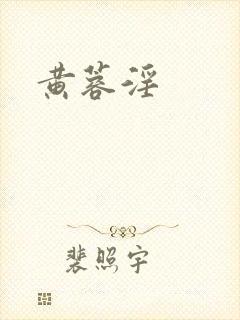 黄蓉淫
裴照宇